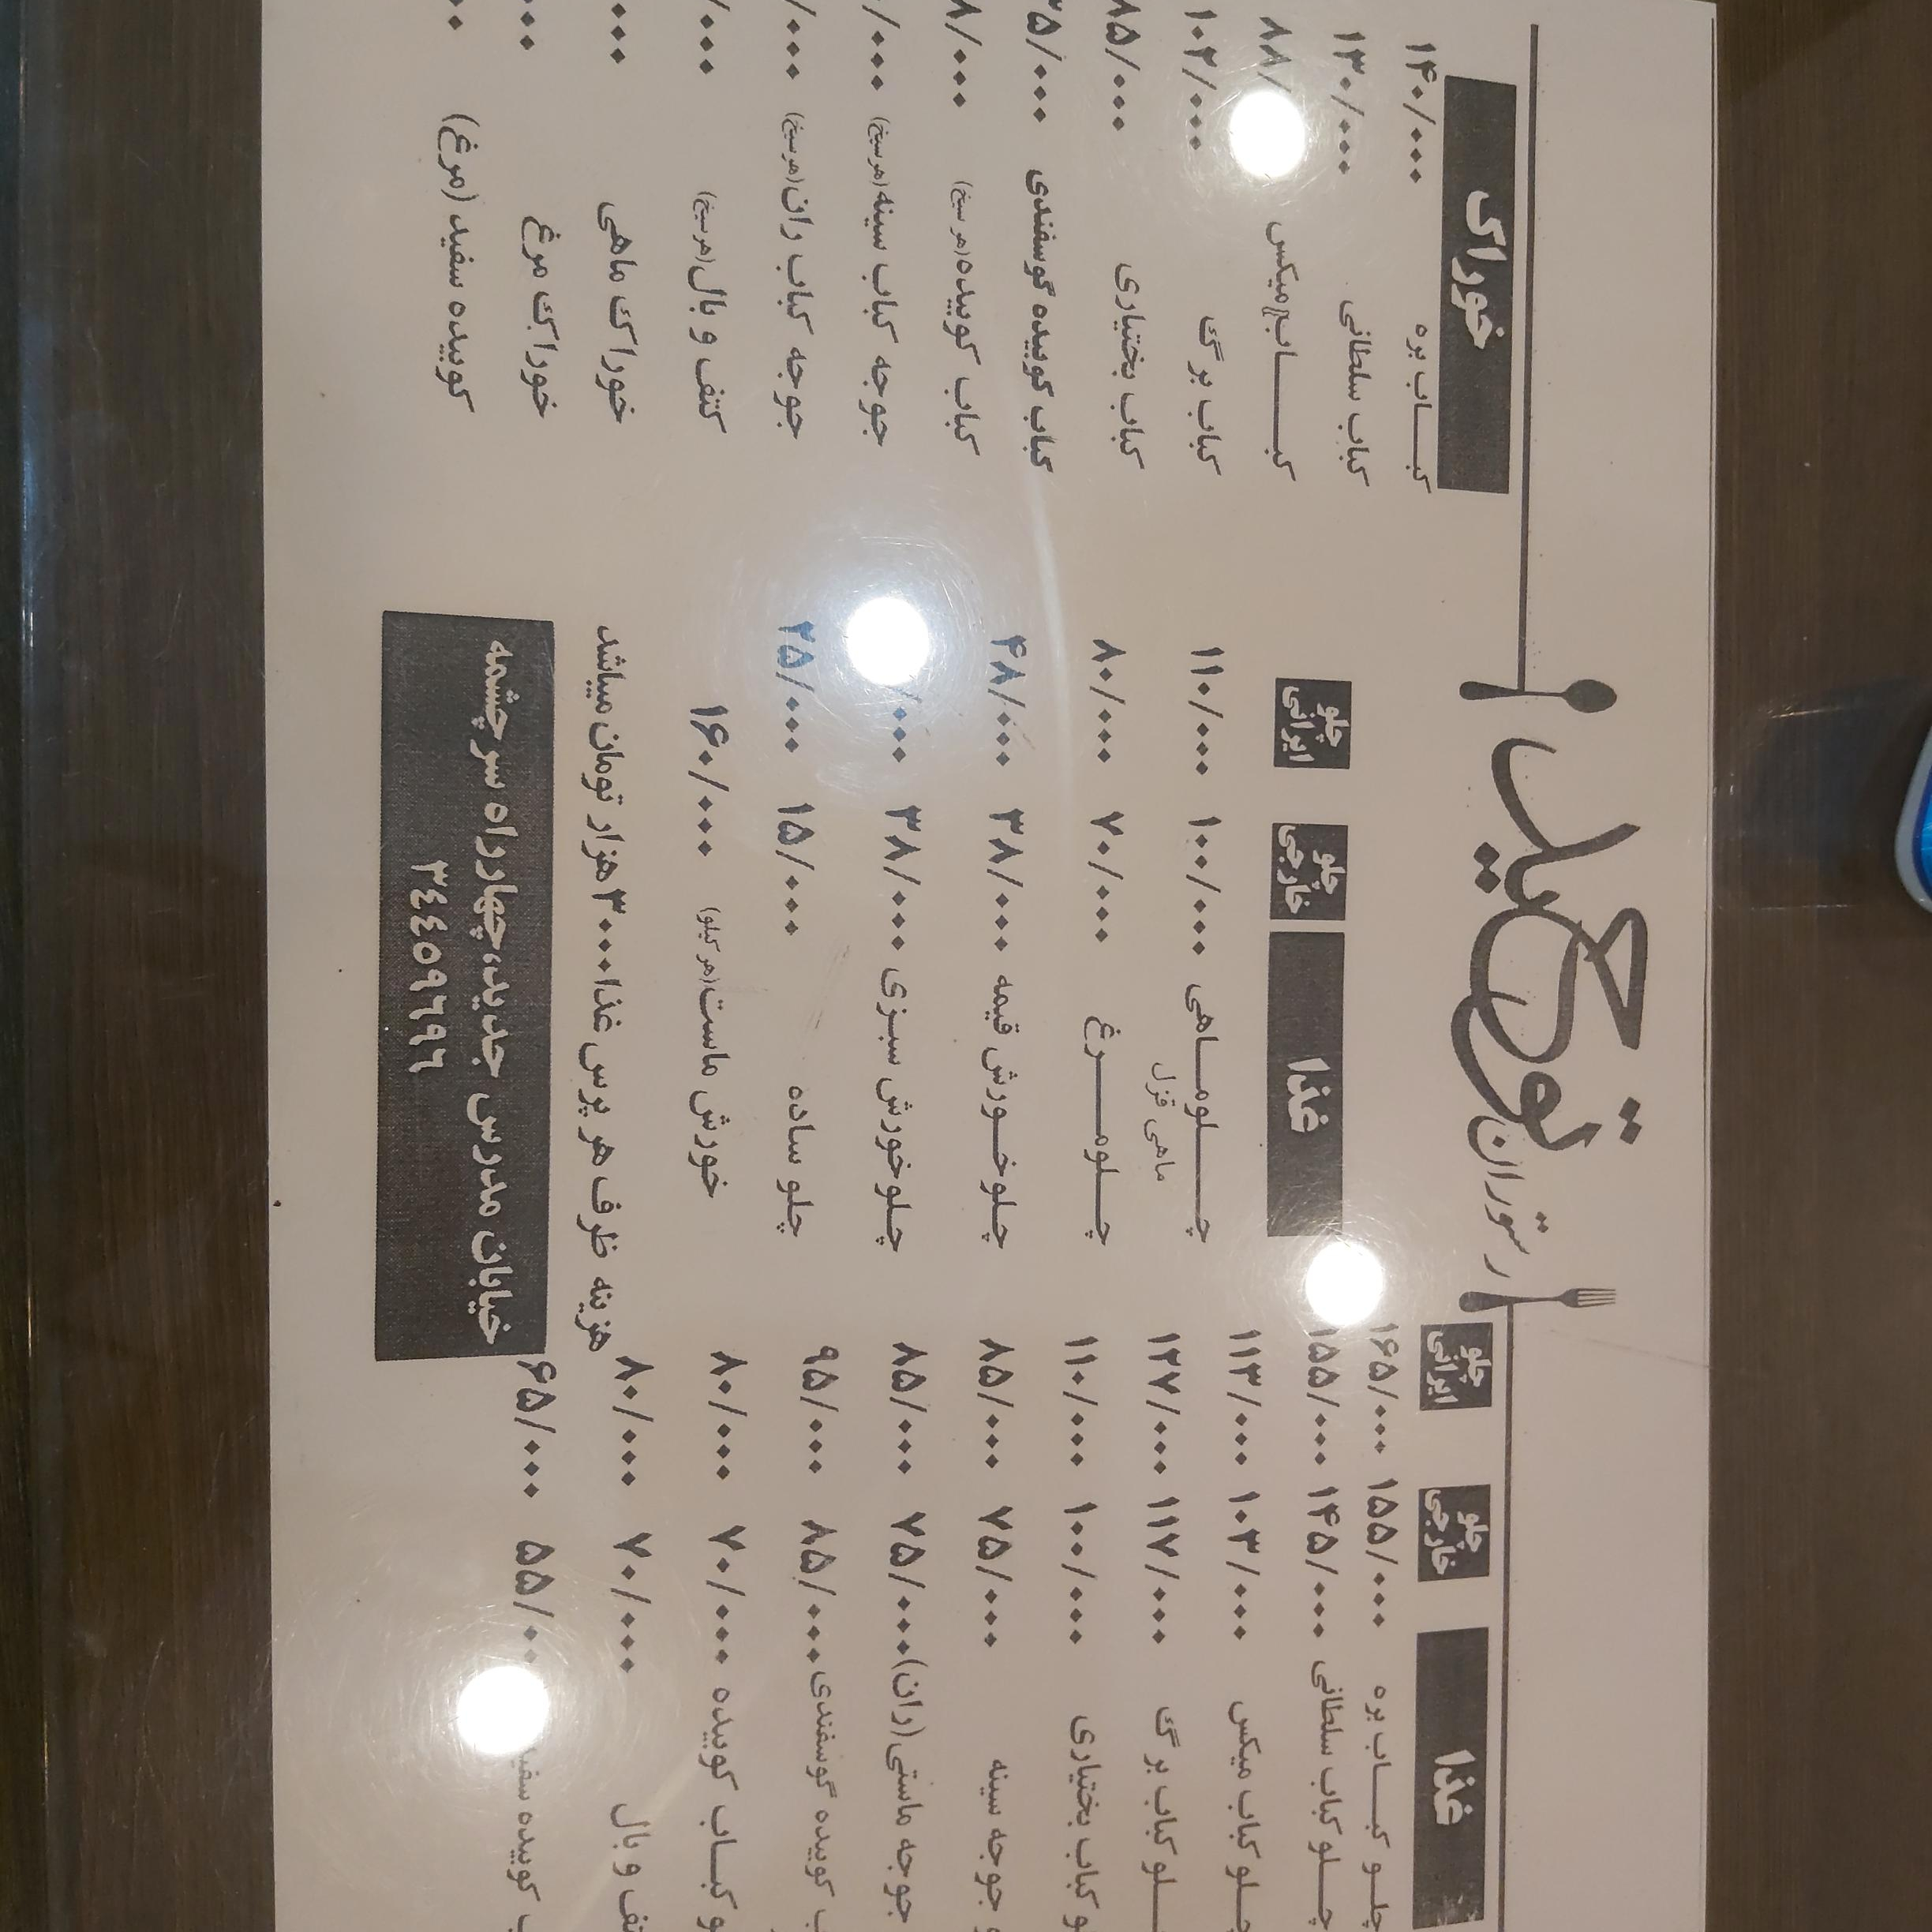 رستوران
چلو ایرانی
چلو خارجی
غذا
۱۶۵/۰۰۰ ۱۵۵/۰۰۰ چلو کباب بره
۱۵۵/۰۰۰ ۱۴۵/۰۰۰ چلو کباب سلطانی
۱۱۳/۰۰۰ ۱۰۳/۰۰۰ چلو کباب میکس
۱۲۷/۰۰۰ ۱۱۷/۰۰۰ چلو کباب برگ
۱۱۰/۰۰۰ ۱۰۰/۰۰۰ کباب بختیاری
۸۵/۰۰۰ ۷۵/۰۰۰ جوجه سینه
۸۵/۰۰۰ ۷۵/۰۰۰ جوجه ماستی (ران)
۹۵/۰۰۰ ۸۵/۰۰۰ کوبیده گوسفندی
۸۰/۰۰۰ ۷۰/۰۰۰ کباب کوبیده
۸۰/۰۰۰ ۷۰/۰۰۰ و بال
۶۵/۰۰۰ ۵۵/۰۰ کوبیده
چلو ایرانی
چلو خارجی
غذا
۱۱۰/۰۰۰ ۱۰۰/۰۰۰ چلوماهی
ماهی قزل
۸۰/۰۰۰ ۷۰/۰۰۰ چلومرغ
۴۸/۰۰۰ ۳۸/۰۰۰ چلوخورش قیمه
/۰۰۰ ۳۸/۰۰۰ چلوخورش سبزی
۲۵/۰۰۰ ۱۵/۰۰۰ چلو ساده
۱۶۰/۰۰۰ خورش ماست (هر کیلو)
هزینه ظرف هر پرس غذا ۳۰۰۰ هزار تومان میباشد
خیابان مدرس جدید، چهارراه سرچشمه
٣٤٤٥٩٦٩٦٦
خوراک
۱۴۰/۰۰۰ کباب بره
۱۳۰/۰۰۰ کباب سلطانی
۸۸/ کباب میکس
۱۰۲/۰۰۰ کباب برگ
۸۵/۰۰۰ کباب بختیاری
۳۵/۰۰۰ کباب کوبیده گوسفندی
۸/۰۰۰ کباب کوبیده (هر سیخ)
/۰۰۰ جوجه کباب سینه (هر سیخ)
/۰۰۰ جوجه کباب ران (هر سیخ)
/۰۰۰ کتف و بال (هر سیخ)
۰۰۰ خوراک ماهی
۰۰ خوراک مرغ
۰۰ کوبیده سفید (مرغ)